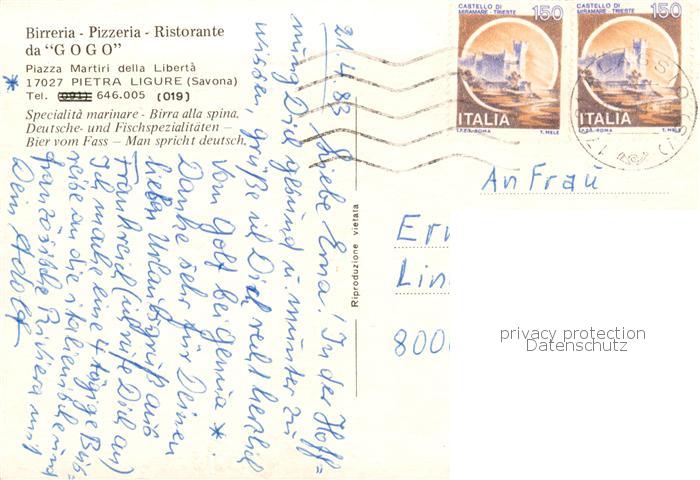 Birreria - Pizzeria - Ristorante
da "GOGO"
Piazza Martiri della Libertà
* 17027 PIETRA LIGURE (Savona)
Tel. (091) 646.005 (019)
Specialità marinare - Birra alla spina,
Deutsche- und Fischspezialitäten –
Bier vom Fass – Man spricht deutsch.
21.4.83 Liebe Erna! In der Hoff=
nung Dich gesund u. munter zu
wissen, grüße ich Dich recht herzlich
vom Golf bei Genua *.
Danke sehr für Deinen
lieben Urlaubsgruß aus
Frankreich (ich rufe Dich an)
Ich mache eine 4 tägige Bus=
reise an die italienische und
französische Riviera mit
Dein Adolf
Riproduzione vietata
CASTELLO DI
MIRAMARE - TRIESTE
150
ITALIA
I.P.Z.S. ROMA T. MELE
CASTELLO DI
MIRAMARE - TRIESTE
150
ITALIA
I.P.Z.S. ROMA T. MELE
An Frau
Er
Lin
800
privacy protection
Datenschutz